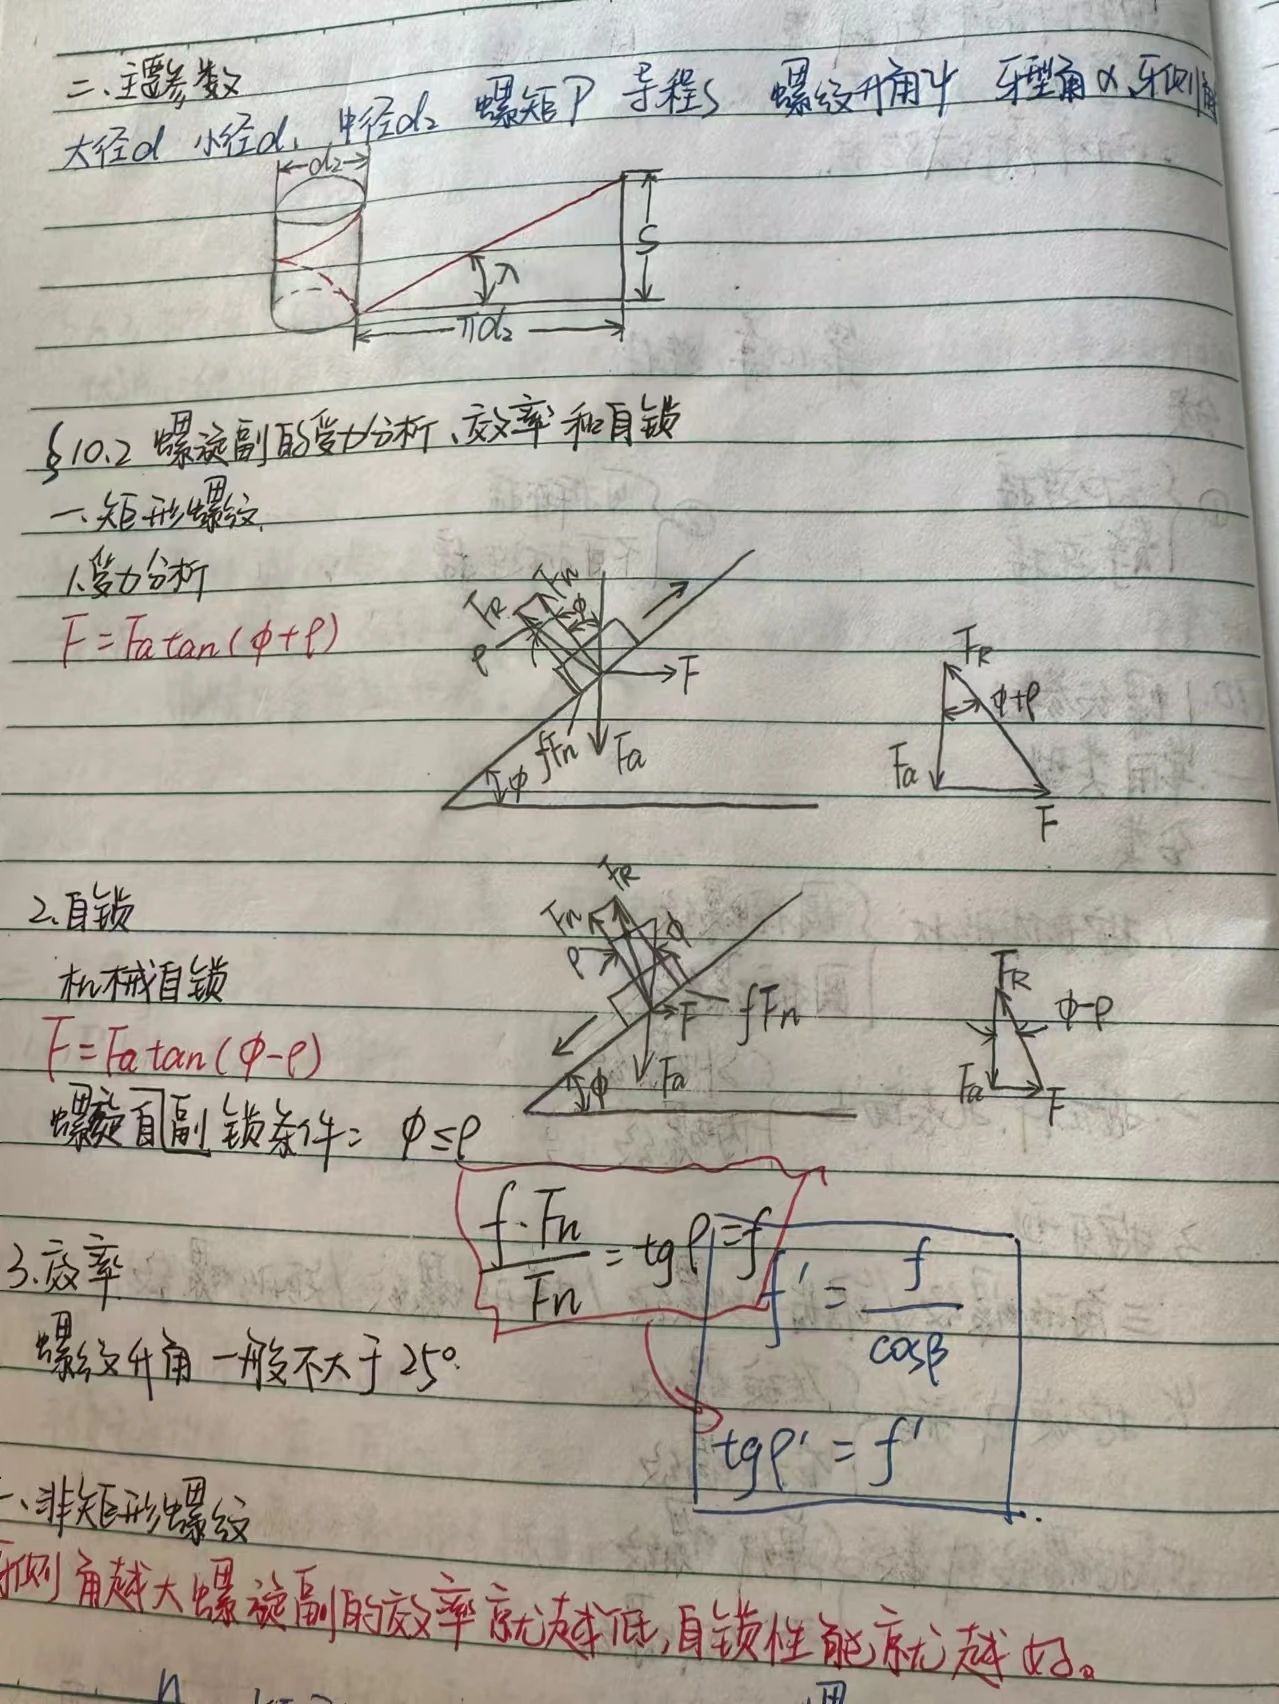 二、主要参数
大径d 小径d₁ 中径d₂ 螺距P 导程S 螺纹升角ψ 牙型角α、牙侧角
d₂
S
λ
πd₂
§10.2 螺旋副的受力分析、效率和自锁
一、矩形螺纹
1.受力分析
F=Fa tan(φ+ρ)
FR Fn φ
ρ
F
fFn Fa
φ
FR
φ+ρ
Fa
F
2.自锁
机械自锁
F=Fa tan(φ-ρ)
螺旋自副锁条件: φ≤ρ
FR
Fn φ
ρ
F fFn
Fa
φ
FR
φ-ρ
Fa F
f·Fn/Fn = tgρ=f
3.效率
螺纹升角一般不大于25°.
f' = f/cosβ
tgρ' = f'
二、非矩形螺纹
牙侧角越大螺旋副的效率就越低,自锁性能就越好。